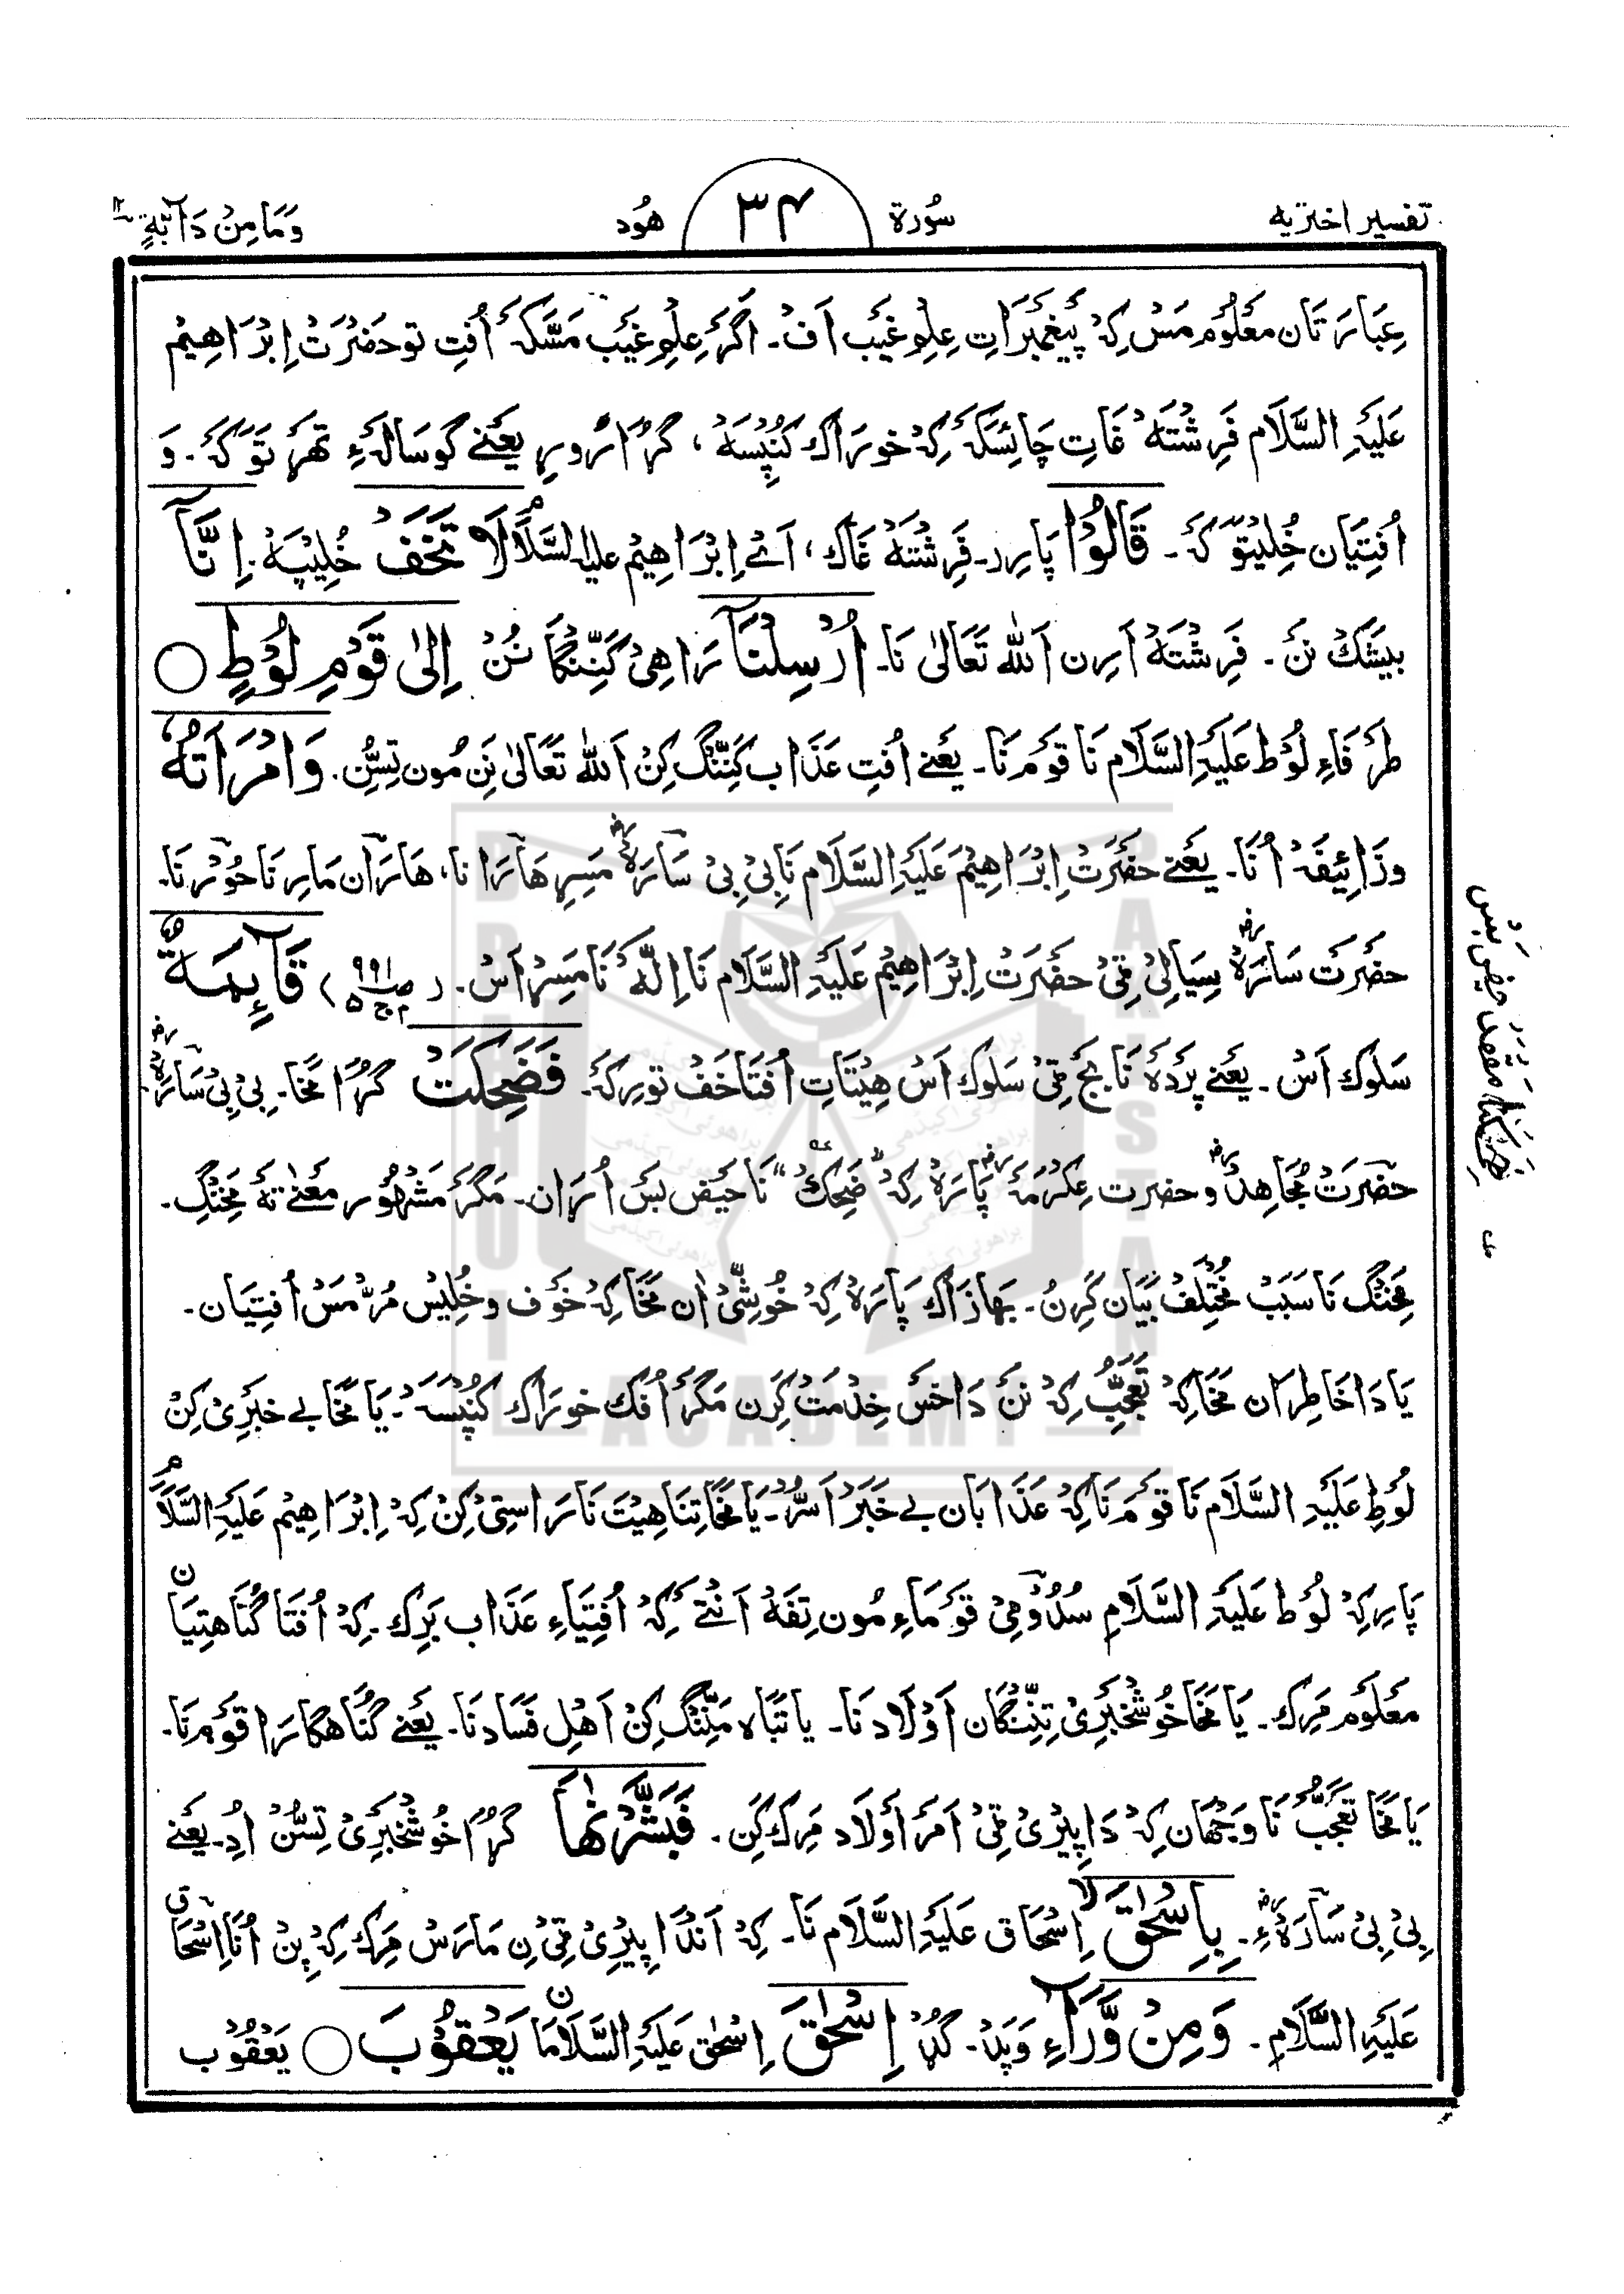 تفسیر اختریه
سُورة
۳۴
هُود
وَمَا مِنْ دَآبَّةٍ ۱۲
عِبَارَتَان معلُوم مَسْ کِہْ پَیغمبَرَاتِ عِلمِ غَیب اَفْ۔ اگرَ عِلمِ غَیب مَسَّکہ اُفتِ تو حَضْرَتْ اِبْرَاهِیمْ
عَلَیۡہِ السَّلَام فَرِشْتَہْ غَاتِ چَائِسَّکَہ کِہْ خوراک کَنْپِسَہْ، گُڑا اَرُوہِ یعَنے گوسَالَہءِ تھَرِ تَوّ کَہَ۔ وَ
اُفتِیَان خُلیتوَّ کَہْ۔ قَالُوْا پَارِر۔ فَرِشْتَہْ غَاک، اَےْ اِبْرَاهِیمْ علیہ السَّلَام لَا تَخَفْ خُلِیپَہْ۔ اِنَّآ
بیشَکْ نَنْ۔ فَرِشْتَہْ اَرِن اَللّٰہ تَعَالیٰ نَا۔ اُرْسِلْنَآ رَاهِیْ کَنِّنْگَا نُنْ اِلیٰ قَوْمِ لُوْطٍ ◯
طَرَفَاءِ لُوط عَلَیۡہِ السَّلَام نَا قومَ نَا۔ یعَنے اُفتِ عَذَاب کَنِنَّگ کِنْ اَللّٰہ تَعَالیٰ نَن مُون تِسُّنِ۔ وَامْرَاَتُہٗ
وزَائِیفَہْ اُنَا۔ یعَنے حضَرَتْ اِبْرَاهِیْمَ عَلَیۡہِ السَّلَام نَا بِیْ بِیْ سَارَہْ رض مَسِڑ هَارَانا، هَارَان مَارِ نَاحُوْرنَا۔
حضَرَت سَارَہْ رض سِیَالِیْ قِیْ حضَرَتْ اِبْرَاهِیْم عَلَیۡہِ السَّلَام نَا اِلَّہ نَا مَسِڑ اَسْ۔ (ص ۹۹۱ م ج ۵) قَآئِمَةٌ
سَلوک اَسْ۔ یعَنے پَرْدَہْ نَا بَجَ قِیْ سَلوک اَسْ هِیْتَاتِ اُفتَا خَفْ تورِکَہْ۔ فَضَحِکَتْ گُڑا مَخَا۔ بِیْ بِیْ سَارَہْ رض
حضَرَتْ مُجَاهِد رض و حضرت عِکرمَہ رض پَارَہْ کِہْ ”ضَحِکْ“ نَا حَیض بَس اُرَان۔ مَگَر مَشْہُوْر معَنیٰ تَہْ مَخِنْگ۔
مَخِنْگ نَا سَبَب مُختَلِفْ بَیَان کَرِنُ۔ بھَازَاک پَارَہْ کِہْ خُوشِیْ اَن مَخَا کِہْ خَوف و خُلِیس مُرّ مَسْ اُفتِیَان۔
یَا دَا خَاطِرَان مَخَا کِہْ تَعَجُّبْ کِہْ نَنْ دَاخَسْ خِدْمَتْ کَرِن مَگرَ اُفک خوراک کَنْپِسَہْ۔ یَا مَخَا بے خبَرِیْ کِنْ
لُوطِ عَلَیۡہِ السَّلَام نَا قومَ نَا کِہْ عَذَابَان بے خَبَرْ اَسُّر۔ یَا مَخَا تِنَا هِیْتَ نَا رَاسِتیْ کِنْ کِہْ اِبْرَاهِیْم عَلَیۡہِ السَّلَام
پَارِ کِہْ لُوط عَلَیۡہِ السَّلَامِ سُدُوْمِیْ قَومَاءِ مُون تِفَہْ اَنْتَے کِہْ اُفتِیَاءِ عَذَاب بَرِک۔ کِہْ اُفتَا گُنَاهتِیَان
معلُوم مَرِک۔ یَا مَخَا خُوشخبَرِیْ تِنِنْگان اَوْلَاد نَا۔ یا تَبَاہ مَنِنْگ کِنْ اَهْلِ فَسَاد نَا۔ یعَنے گنَّاهگارَا قومَ نَا۔
یَا مَخَا تَعَجُّبْ نَا وَجْهَان کِہْ دَا پِیْرِیْ قِیْ اَمَرْ اَوْلَاد مَرِک کَن۔ فَبَشَّرْنٰهَا گُڑا خُوشخبَرِیْ تِسُّنْ اُدِ۔ یعَنے
بِیْ بِیْ سَارَہْ رض ءِ۔ بِاِسْحٰقَ ۙ اِسْحَاق عَلَیۡہِ السَّلَام نَا۔ کِہْ اَنْدَا پِیْرِیْ قِیْ نِ مَارَسْ مَرِک کِہْ پِنْ اُنَا اِسْحَاق
عَلَیۡہِ السَّلَامِ۔ وَمِنْ وَّرَآءِ وَپَدْ۔ گُڈ اِسْحٰقَ اِسْحٰق عَلَیۡہِ السَّلَامَان یَعْقُوْبَ ◯ یَعْقُوْب